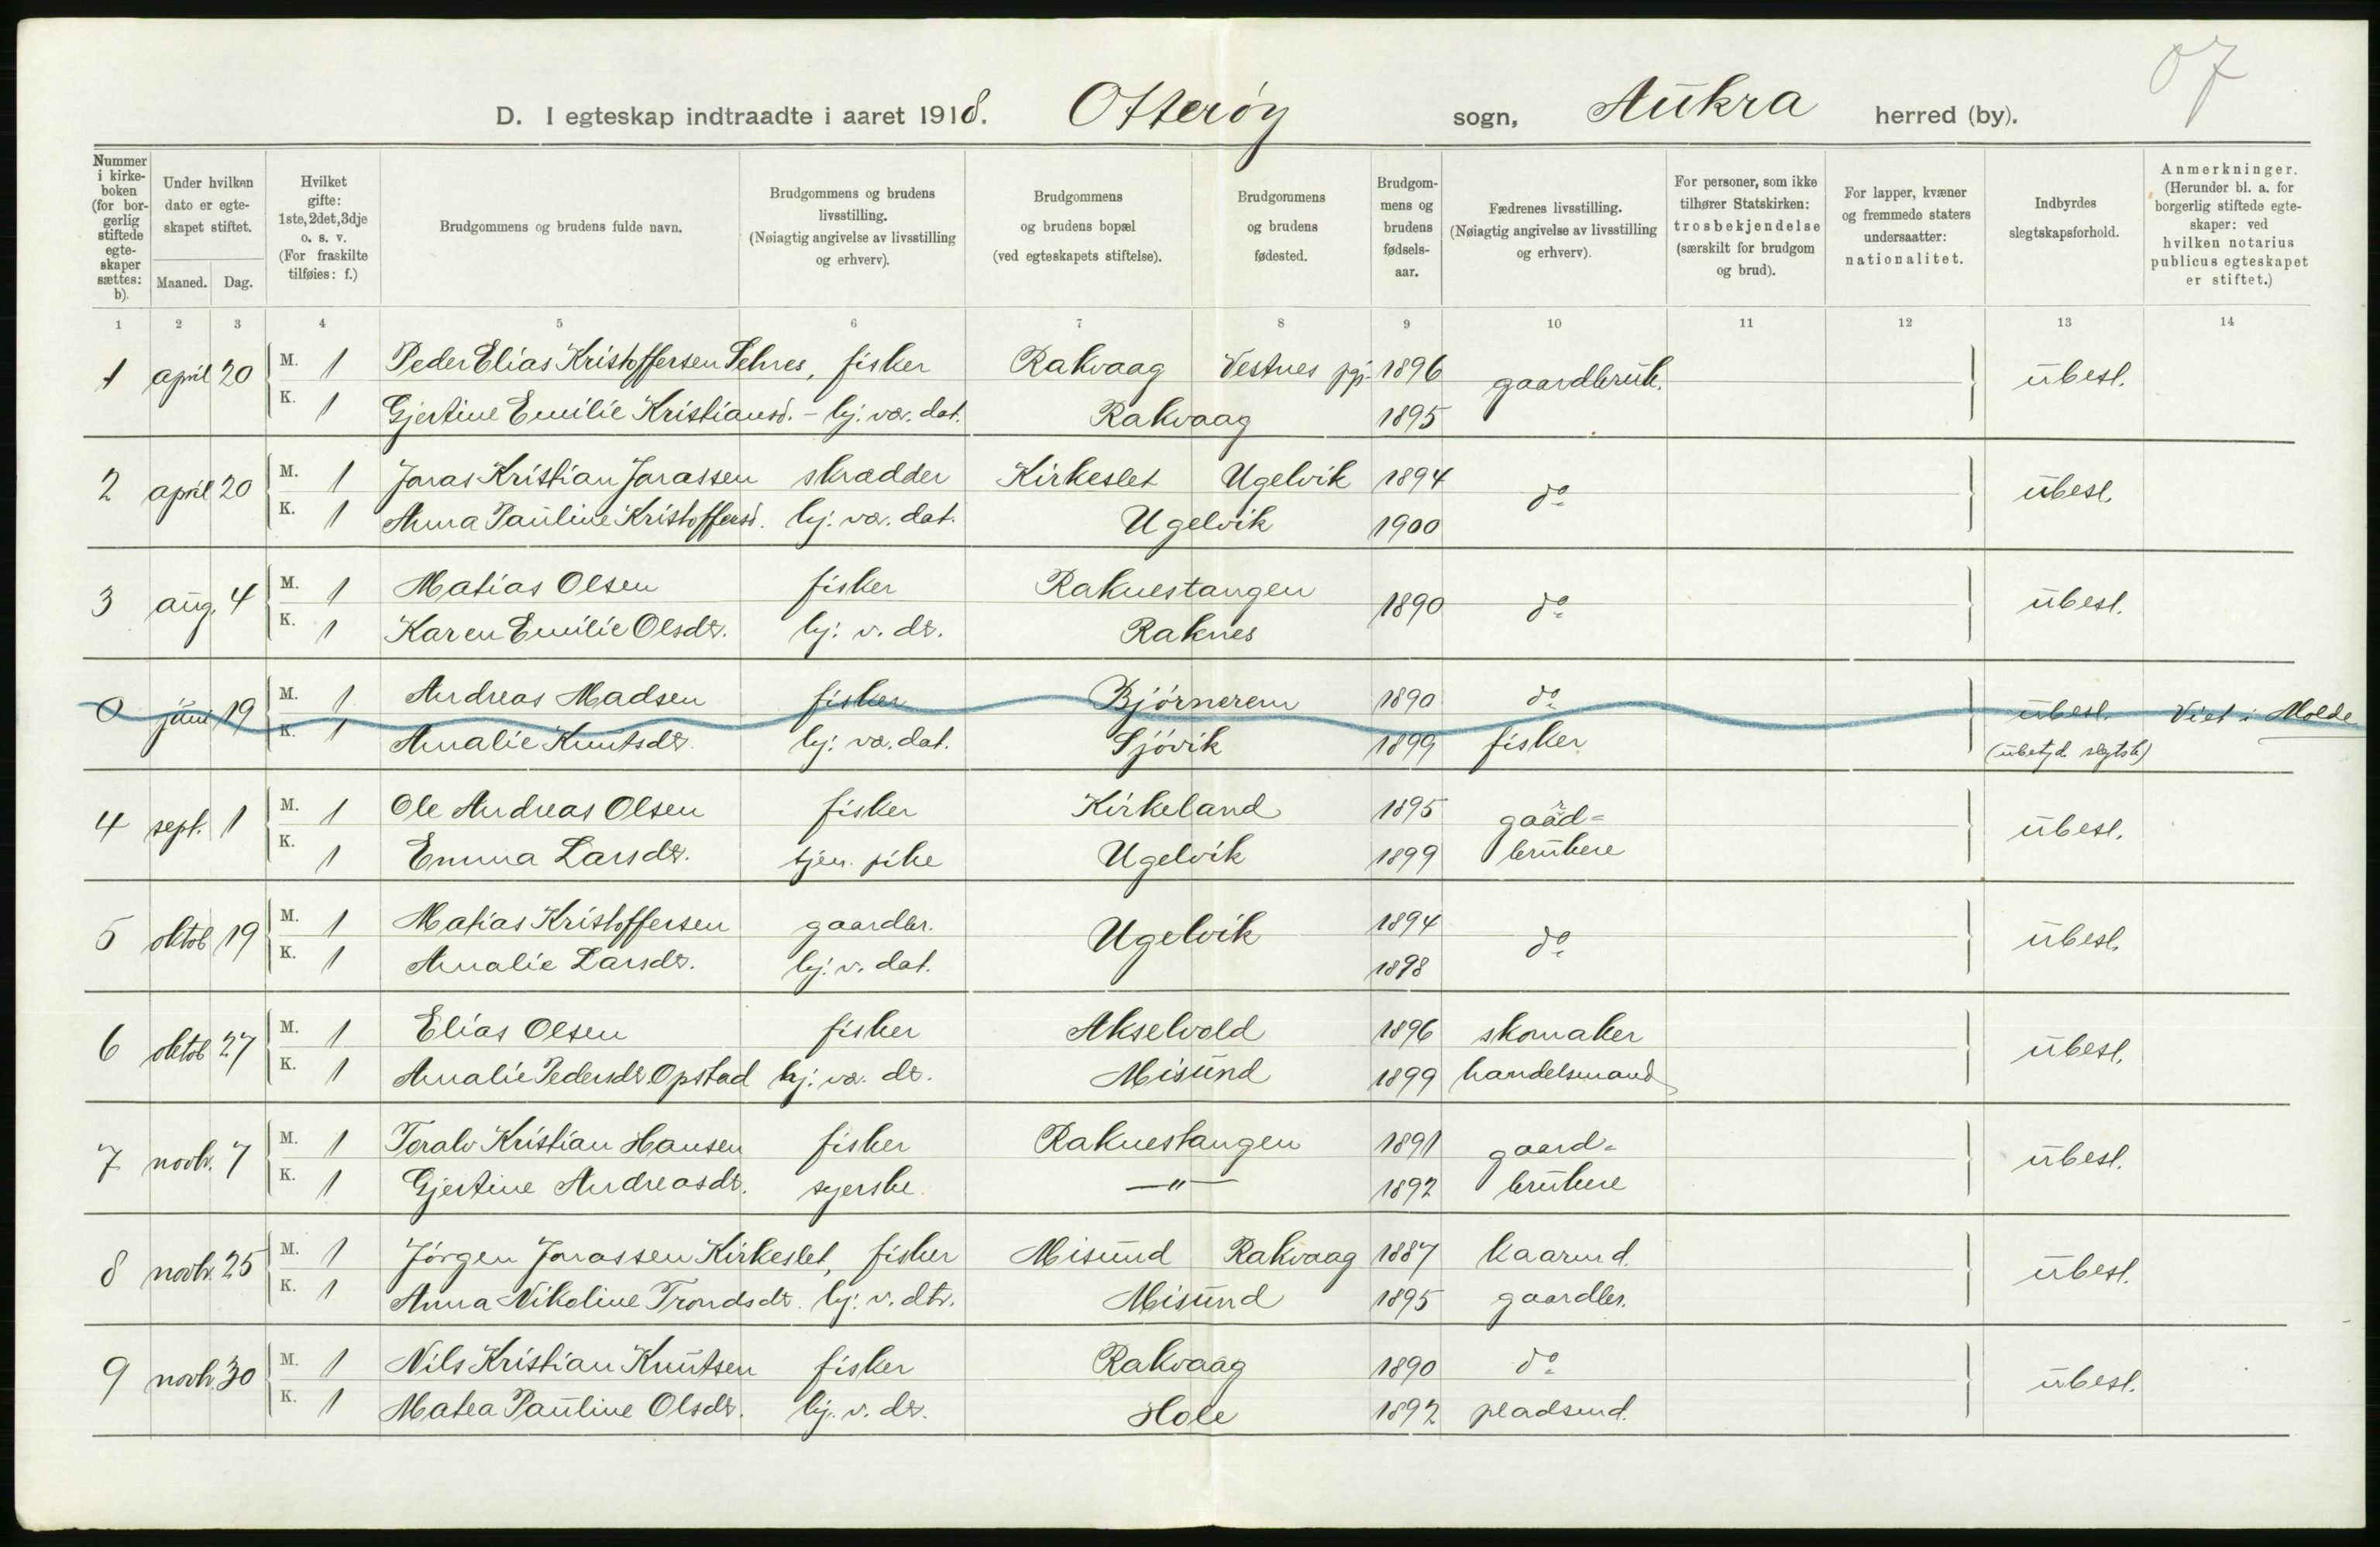 07
D. I egteskap indtraadte i aaret 1918. Otterøy sogn, Aukra herred (by).
Nummer i kirkeboken (for borgerlig stiftede egteskaper sættes: b).
Under hvilken dato er egteskapet stiftet.
Maaned. Dag.
Hvilket gifte: 1ste, 2det, 3dje o. s. v. (For fraskilte tilføies: f.)
Brudgommens og brudens fulde navn.
Brudgommens og brudens livsstilling. (Nøiagtig angivelse av livsstilling og erhverv).
Brudgommens og brudens bopæl (ved egteskapets stiftelse).
Brudgommens og brudens fødested.
Brudgommens og brudens fødselsaar.
Fædrenes livsstilling. (Nøiagtig angivelse av livsstilling og erhverv).
For personer, som ikke tilhører Statskirken: trosbekjendelse (særskilt for brudgom og brud).
For lapper, kvæner og fremmede staters undersaatter: nationalitet.
Indbyrdes slegtskapsforhold.
Anmerkninger. (Herunder bl. a. for borgerlig stiftede egteskaper: ved hvilken notarius publicus egteskapet er stiftet.)
1 2 3 4 5 6 7 8 9 10 11 12 13 14
1 april 20 M. 1 Peder Elias Kristoffersen, fisker Rakvaag Vestnes pgj. 1896 gaardbruk. übesl.
K. 1 Gjertine Emilie Kristiansd. - hj. væ. dat. Rakvaag 1895
2 april 20 M. 1 Jonas Kristian Jonassen skrædder Kirkeslet Ugelvik 1894 do übesl.
K. 1 Anna Pauline Kristoffersd. hj. væ. dat. Ugelvik 1900
3 aug. 4 M. 1 Matias Olsen fisker Raknestangen 1890 do übesl.
K. 1 Karen Emilie Olsdt. hj. v. dt. Raknes
0 juni 19 M. 1 Andreas Madsen fisker Bjørnerem 1890 do übesl. Viet i Molde
K. 1 Amalie Knutsdt. hj. væ. dat. Sjøvik 1899 fisker (übetyd. slegtsk)
4 sept. 1 M. 1 Ole Andreas Olsen fisker Kirkeland 1895 gaard= übesl.
K. 1 Emma Larsdt. tjen. pike Ugelvik 1899 brukere
5 oktob 19 M. 1 Matias Kristoffersen gaardbr. Ugelvik 1894 do übesl.
K. 1 Amalie Larsdt. hj. v. dat. 1898
6 oktob 27 M. 1 Elias Olsen fisker Akselvold 1896 skomaker übesl.
K. 1 Amalie Pedersdt. Opstad hj. væ. dt. Misund 1899 handelsmand
7 novbr. 7 M. 1 Toralv Kristian Hansen fisker Raknestangen 1891 gaard= übesl.
K. 1 Gjertine Andreasdt. syerske —"— 1892 brukere
8 novbr. 25 M. 1 Jørgen Jonassen Kirkeslet, fisker Misund Rakvaag 1887 kaarmd. übesl.
K. 1 Anna Nikoline Trondsdt. hj. v. dtr. Misund 1895 gaardbr.
9 novbr. 30 M. 1 Nils Kristian Knutsen fisker Rakvaag 1890 do übesl.
K. 1 Matea Pauline Olsdt. hj. v. dt. Hole 1892 pladsmd.